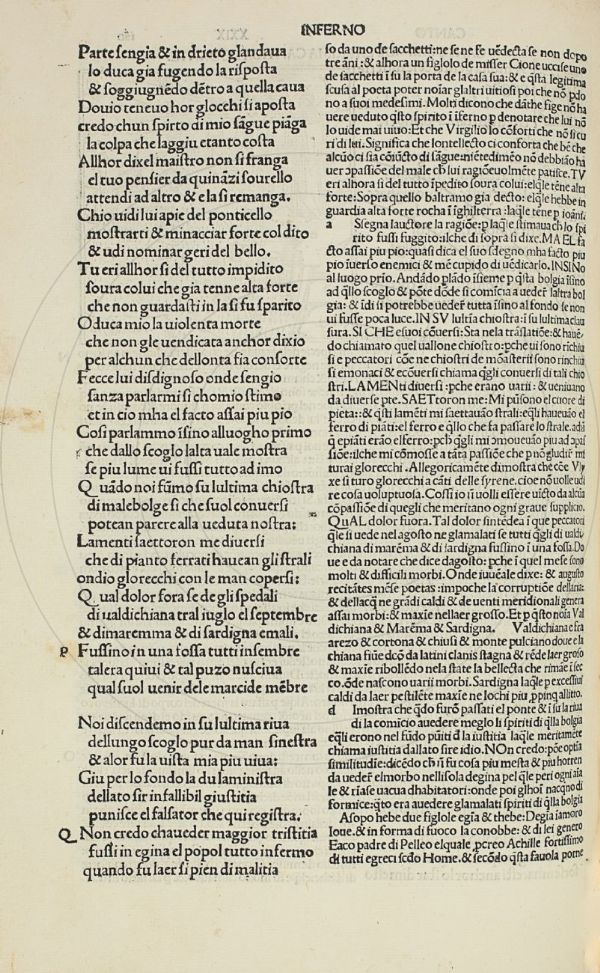 INFERNO
Parte sengia & in drieto glandaua
lo duca gia fugendo la risposta
& soggiugnẽdo dẽtro a quella caua
Douio teneuo hor glocchi si aposta
credo chun spirto di mio sãgue piãga
la colpa che laggiu etanto costa
Allhor dixel maistro non si franga
el tuo pensier da quinãzi sourello
attendi ad altro & ela si remanga.
Chio uidi lui apie del ponticello
mostrarti & minacciar forte col dito
& udi nominar geri del bello.
Tu eri allhor si del tutto impidito
soura colui che gia tenne alta forte
che non guardasti in la si fu sparito
O duca mio la uiolenta morte
che non gle uendicata anchor dixio
per alchun che dellonta fia consorte
Fecce lui disdignoso onde sengio
sanza parlarmi si chomio stimo
et in cio mha el facto assai piu pio
Cosi parlammo ĩsino alluogho primo
che dallo scoglo lalta uale mostra
se piu lume ui fussi tutto ad imo
Quãdo noi fũmo su lultima chiostra
di malebolge si che suoi conuersi
potean parere alla ueduta nostra:
Lamenti saettoron me diuersi
che di pianto ferrati hauean gli strali
ondio glorecchi con le man copersi:
Qual dolor fora se de gli spedali
di ualdichiana tral iuglo el septembre
& dimaremma & di sardigna emali.
P Fussino in una fossa tutti insembre
talera quiui & tal puzo nusciua
qual suol uenir dele marcide mẽbre
Noi discendemo in su lultima riua
dellungo scoglo pur da man sinestra
& alor fu la uista mia piu uiua:
Giu per lo fondo la du laministra
dellato sir infallibil giustitia
punisce el falsator che qui registra.
Q Non credo chaueder maggior tristitia
fussi in egina el popol tutto infermo
quando fu laer si pien di malitia
so da uno de sacchetti: ne se ne fe uẽdecta se non dopo
tre ãni: & alhora un figlolo de misser Cione uccise uno
de sacchetti ĩ su la porta de la casa sua: & e q̃sta legitima
scusa al poeta poter noiar glaltri uitiosi poi che nõ pdo
no a suoi medesimi. Molti dicono che dãthe fige nõ ha
uere ueduto q̃sto spirito ĩ ĩferno p denotare che lui nõ
lo uide mai uiuo: Et che Virgilio lo cõforti che nõ si cu
ri di lui. Significa che lontellecto ci conforta che bẽ che
alcũo ci sia cõiũcto di sãgue: niẽtedimẽo nõ debbião ha
uer cõpassione del male ch lui ragiõeuolmẽte patisce. TV
eri alhora si del tutto ĩpedito soura colui: elq̃le tẽne alta
forte: Sopra quello baltramo gia decto: elq̃le hebbe in
guardia alta forte rocha ĩ ĩghilterra: laq̃le tẽne p ioãni
a Sisegna lauctore la ragiõe: p laq̃le stimaua ch lo spi
rito fussi fuggito: ilche di sopra si dixe. MA EL fa
cto assai piu pio: quasi dica el suo sdegno mha facto piu
pio iuerso enemici & mẽ cupido di uẽdicarlo. INSINO
al luogo prio. Andãdo plãdo ĩsieme p q̃sta bolgia ĩsino
ad q̃llo scoglo & põte dõde si comĩcia a uedef laltra bol
gia: & ĩdi si potrebbe uedef tutta ĩsino al fondo se non
ui fusse poca luce. IN SV lultĩa chiostra: ĩ su lultima clau
sura. SI CHE e suoi cõuersi: Sta nela traslatiõe: & hauẽ
do chiamato quel uallone chiostro: pche ui sono richiu
si e peccatori cõe ne chiostri de mõasterii sono rinchiu
si emonaci & ecõuersi chiama q̃gli conuersi di tali chio
stri. LAMENti diuersi: pche erano uarii: & ueniuano
da diuerse pte. SAETtoron me: Mi pũsono el cuore di
pieta: & q̃sti lamẽti mi saettauão strali: eq̃li haueuão el
ferro di piãti: el ferro e q̃llo che fa passare lo strale. adũ
q̃ epiãti erão elferro: pch q̃gli mi cõmoueuão piu ad cõpas
siõe: ilche mi cõmosse a tãta passiõe che p nõ gludirf mi
turai glorecchi. Allegoricamẽte dimostra che cõe Vly
xe si turo glorecchi a cãti delle syrene. cioe nõ uolle udi
re cosa uoluptuosa. Cossi io nõ uolli essere uisto da alcũa
cõpassiõe di quegli che meritano ogni graue supplicio.
QuAL dolor fuora. Tal dolor sintẽdea ĩ que peccatori
q̃le si uede nel agosto ne glamalati se tutti q̃gli di ualdi
chiana di marẽma & di sardigna fussino ĩ una fossa. Do
ue e da notare che dice dagosto: pche ĩ quel mese sono
molti & difficili morbi. Onde iuuẽale dixe: & augusto
recitãtes mẽse poetas: impoche la corruptiõe dellaria:
& dellacq̃ ne grãdi caldi & de uenti meridionali genera
assai morbi: & maxie nellaer grosso. Et p q̃sto noia Val
dichiana & Marẽma & Sardigna. Valdichiana e fra
arezo & cortona & chiusi & monte pulciano doue e la
chiana fiue dcõ da latini clanis stagna & rẽde laer groso
& maxie ribollẽdo nela state la bellecta che rimãe ĩ sec
co. õde nascono uarii morbi. Sardigna laq̃le p excessiui
caldi da laer pestilẽte maxie ne lochi piu ppinq̃ allito.
d Imostra che q̃do furõ passati el ponte & ĩ su la riua
di la comĩcio auedere meglo li spiriti di q̃lla bolgia
eq̃li erono nel fũdo pũiti d la iustitia laq̃le meritamẽte
chiama iustitia dallato sire idio. NOn credo: põe optia
similitudie: dicẽdo ch nõ fu cosa piu mesta & piu horren
da uedef elmorbo nellisola degina pel q̃le peri ogni aĩa
le & riase uacua dhabitatori: onde poi glhoĩ nacq̃no di
formice: q̃to era auedere glamalati spiriti di q̃lla bolgia
Asopo hebe due figlole egia & thebe: Degia ĩamoro
Ioue. & in forma di fuoco la conobbe: & di lei genero
Eaco padre di Pelleo elquale pcreo Achille fortissimo
di tutti egreci scdo Home. & secõdo q̃sta fauola põne